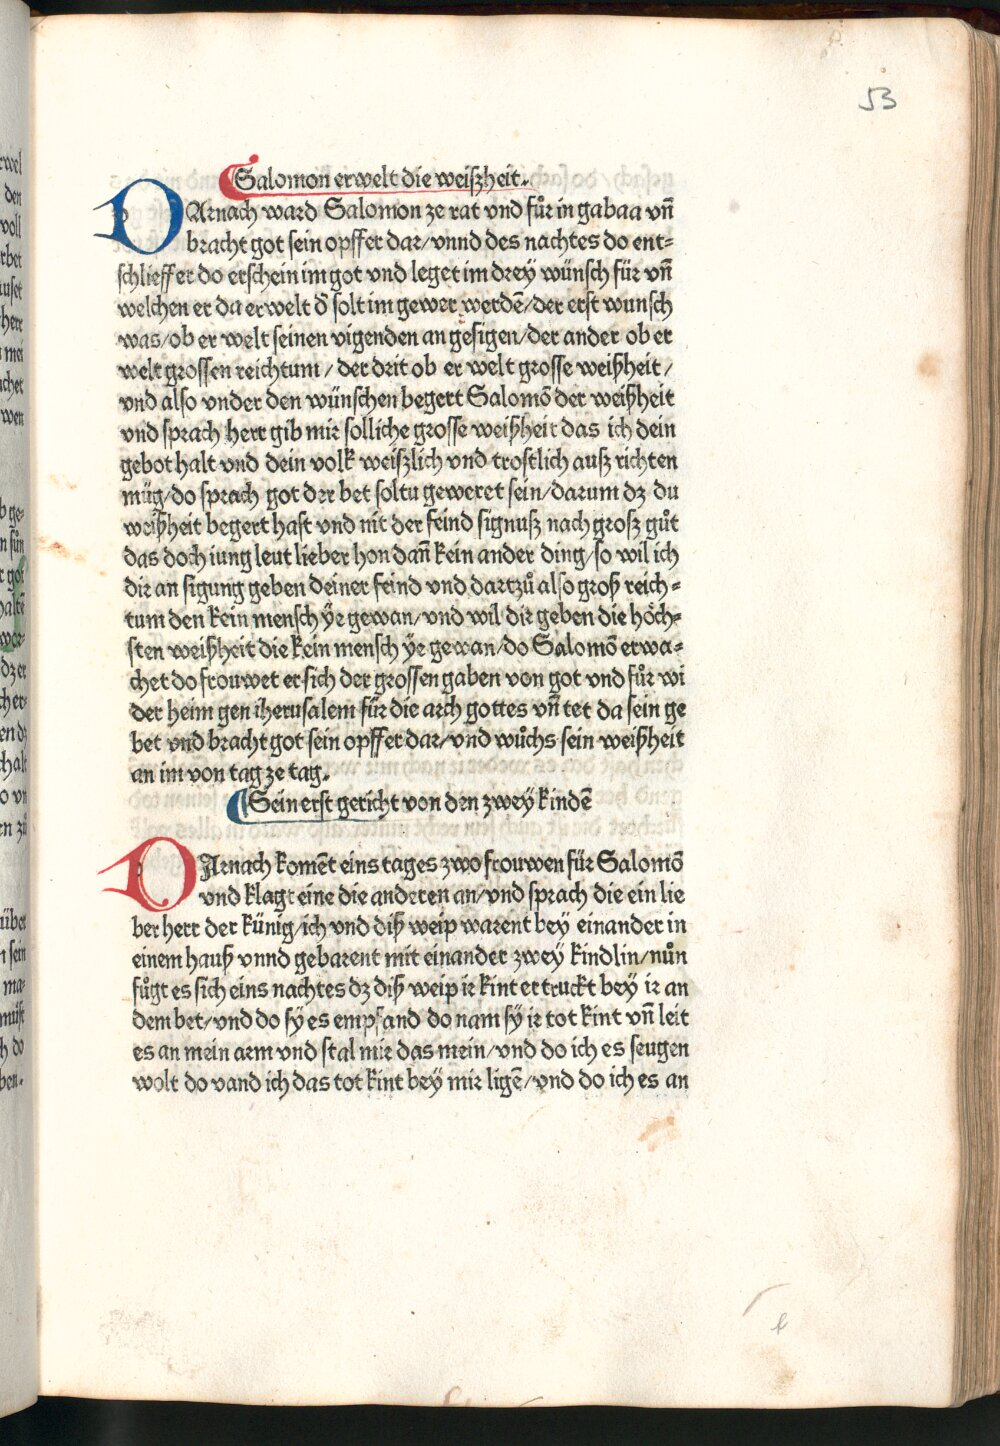 53
Salomon erwelt die weiſzheit.
DArnach ward Salomon ze rat vnd fuͦr in gabaa vn̄
bracht got ſein opffer dar/vnnd des nachtes do ent⸗
ſchlieff er do erſchein im got vnd leget im drey wünſch für vn̄
welchen er da erwelt d̄ ſolt im gewer werdē/der erſt wunſch
was/ob er welt ſeinen vigenden an geſigen/der ander ob er
welt groſſen reichtum/der drit ob er welt groſſe weißheit/
vnd alſo vnder den wünſchen begert Salomō der weißheit
vnd ſprach herr gib mir ſolliche groſſe weißheit das ich dein
gebot halt vnd dein volk weiſzlich vnd troſtlich auſz richten
müg/do ſprach got der bet ſoltu geweret ſein/darum dz du
weißheit begert haſt vnd nit der feind ſignuſz nach groſz guͦt
das doch iung leut lieber hon dan̄ kein ander ding/ſo wil ich
dir an ſigung geben deiner feind vnd dartzuͦ alſo groß reich⸗
tum den kein menſch ÿe gewan/vnd wil dir geben die höch⸗
ſten weißheit die kein menſch ÿe gewan/do Salomō erwa⸗
chet do frouwet er ſich der groſſen gaben von got vnd fuͦr wi
der heim gen iheruſalem für die arch gottes vn̄ tet da ſein ge
bet vnd bracht got ſein opffer dar/vnd wuͦchs ſein weißheit
an im von tag ze tag.
Sein erſt gericht von den zweÿ kindē
DArnach komēt eins tages zwo frouwen für Salomō
vnd klagt eine die anderen an/vnd ſprach die ein lie
ber herr der künig/ich vnd diß weip warent bey einander in
einem hauß vnnd gebarent mit einander zwey kindlin/nuͦn
fuͦgt es ſich eins nachtes dz diß weip ir kint ertruckt bey ir an
dem bet/vnd do ſÿ es empfand do nam ſÿ ir tot kint vn̄ leit
es an mein arm vnd ſtal mir das mein/vnd do ich es ſeugen
wolt do vand ich das tot kint beÿ mir ligē/vnd do ich es an